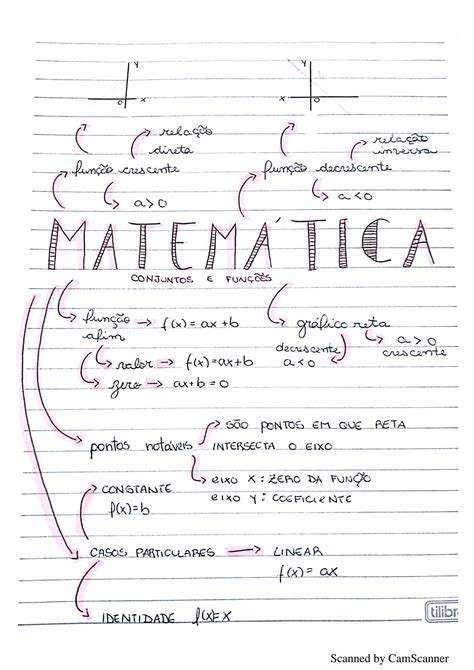 y y
o x x o
relação
direta
relação
inversa
função crescente função decrescente
a>0 a<0
MATEMÁTICA
CONJUNTOS E FUNÇÕES
função → f(x) = ax+b gráfico reta
afim
decrescente a > 0
a<0 crescente
valor → f(x)=ax+b
zero → ax+b=0
SÃO PONTOS EM QUE RETA
pontos notáveis INTERSECTA O EIXO
eixo X: ZERO DA FUNÇÃO
eixo y: COEFICIENTE
CONSTANTE
f(x)=b
CASOS PARTICULARES → LINEAR
f(x) = ax
IDENTIDADE f(x)=X
tilibra
Scanned by CamScanner